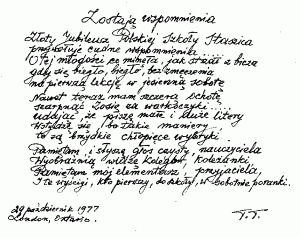 Zostają wspomnienia
Złoty Jubileusz Polskiej Szkoły Staszica
przywołuje cudne wspomnienia .....
O tej młodości co minęła, jak strzał z bicza
gdy się biegło, biegło, bez zmęczenia
na pierwszą lekcję w jesienną sobotę
Nawet teraz mam szczerą ochotę
szarpnąć Zosię za warkoczyki .....
udając, że piszę małe i duże litery
Wstydzę się, bo takie maniery,
to są zwykłe chłopięce wybryki.
Pamiętam, i słyszę głos czysty, nauczyciela
Wyobraźnią widzę kolegów, koleżanki,
Pamiętam mój elementarz, przyjaciela,
I te wyścigi, kto pierwszy, do szkoły, w sobotnie poranki.
29 październik 1977
London, Ontario.
T.T.